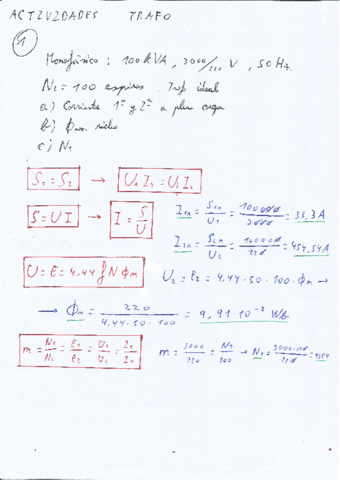 ACTIVIDADES TRAFO
1
Monofásico : 100 kVA, 3000/220 V, 50 Hz.
N2 = 100 espiras. Traf. ideal
a) Corriente 1º y 2º a plena carga
b) Φm núcleo
c) N1
S1 = S2 → U1 I1 = U2 I2
S = U I → I = S/U I1n = S1n/U1 = 100000/3000 = 33,3 A
I2n = S2n/U2 = 100000/220 = 454,54 A
U = E = 4.44 f N Φm U2 = E2 = 4.44 · 50 · 100 · Φm →
→ Φm = 220/4.44·50·100 = 9,91·10⁻² Wb
m = N1/N2 = E1/E2 = U1/U2 = I2/I1 m = 3000/220 = N1/100 → N1 = 3000·100/220 = 1364